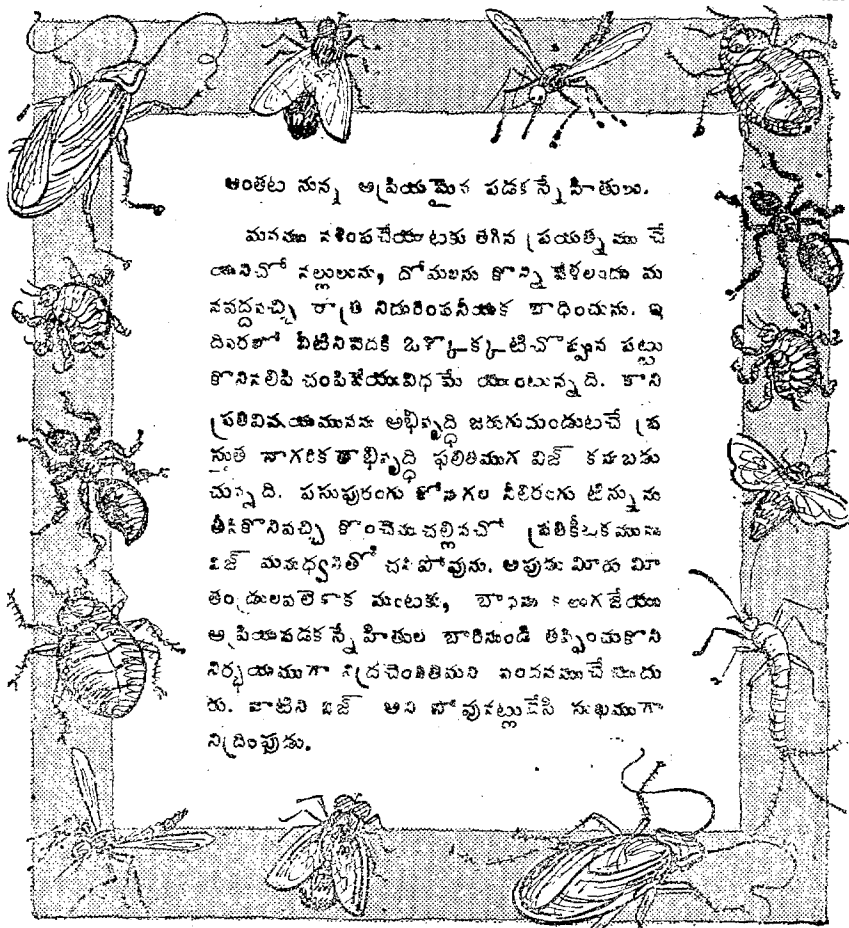 అంతట నున్న అప్రియమైన పడకన్నేహితులు.
మనము నశింపచేయుటకు తగిన ప్రయత్నము చే
యనిచో నల్లులును, దోమలును కొన్ని వేళలందు మ
నవద్దవచ్చి రాత్రి నిదురింపనీయక బాధించును. ఇ
దివరలో వీటినివెదకి ఒక్కొక్కటిచొప్పున పట్టు
కొనినలిపి చంపివేయువిధమే యుంటున్నది. కాని
ప్రతివిషయమునను అభివృద్ధి జరుగుచుండుటచే ప్ర
స్తుత నాగరికతాభివృద్ధి ఫలితముగ విజ్ కనబడు
చున్నది. పసుపురంగు కోణగల నీలిరంగు టిన్నును
తీసికొనివచ్చి కొంచెముచల్లినచో ప్రతికీటకమును
విజ్ మనుధ్వనితో చనిపోవును. అపుడు మీరు మీ
తండ్రులవలెకాక మంటకు, బాధను కలుగజేయు
అప్రియపడకన్నేహితుల బారినుండి తప్పించుకొని
నిర్భయముగా నిద్రచెందితిమని వందనముచేసెదు
రు. వాటిని విజ్ అని పోవునట్లుచేసి సుఖముగా
నిద్రింపుడు.